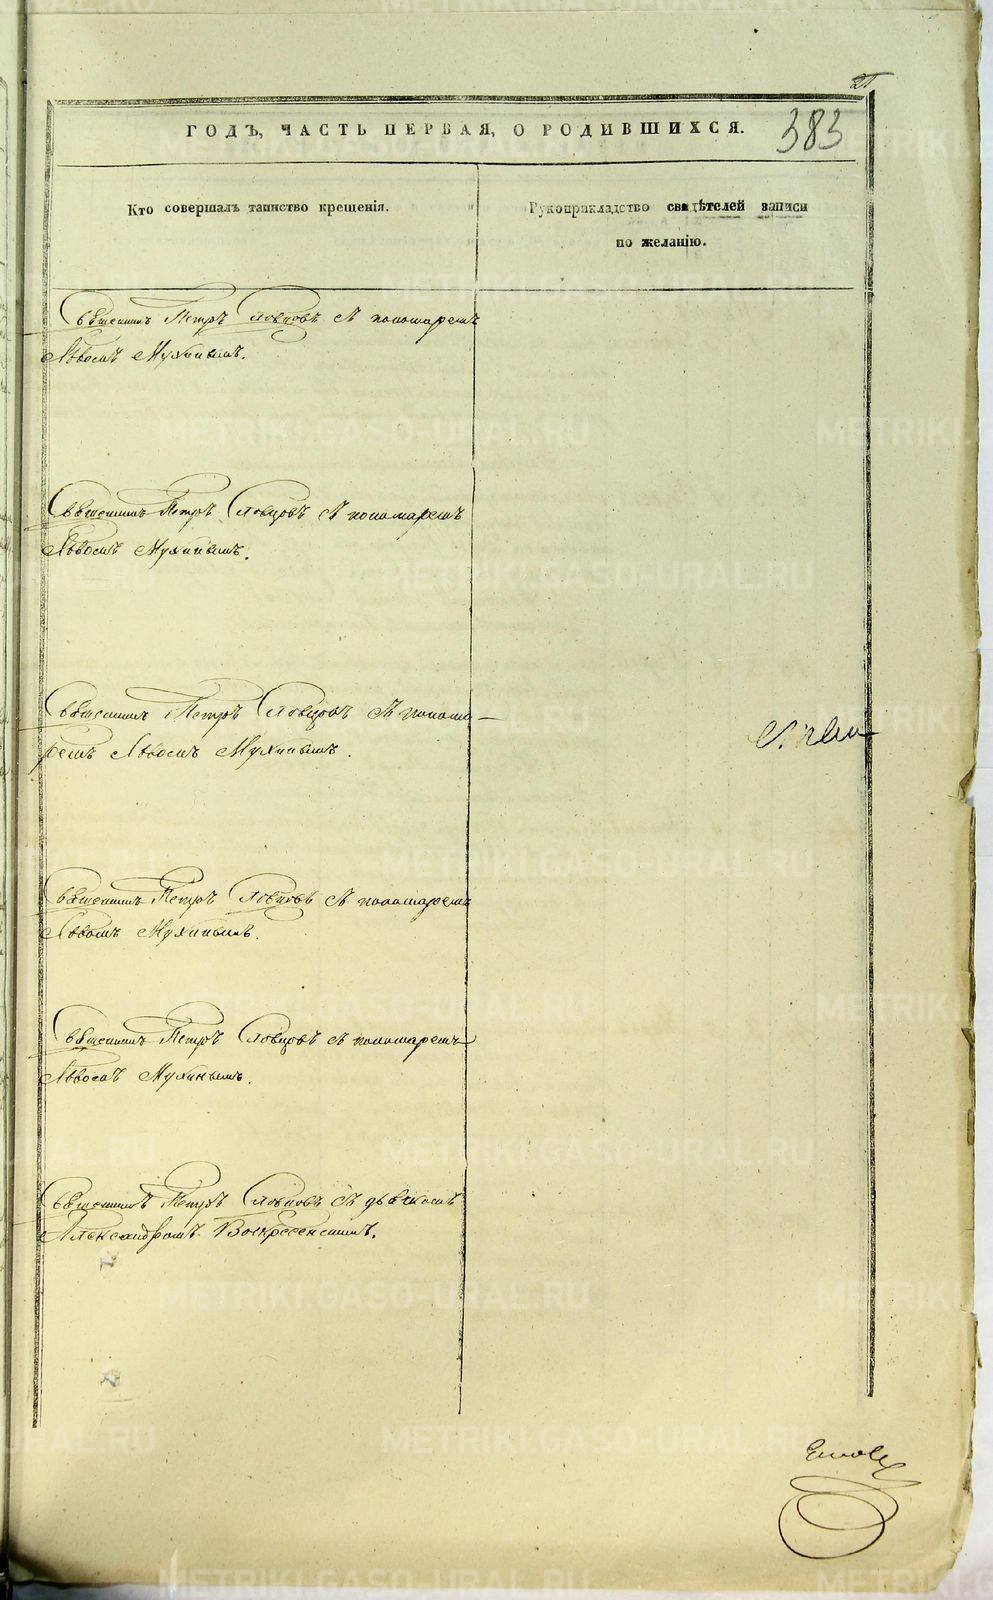 ГОДЪ, ЧАСТЬ ПЕРВАЯ, О РОДИВШИХСЯ.
383
Кто совершалъ таинство крещенія.
Рукоприкладство свидѣтелей записи
по желанію.
Священникъ Петръ Словцовъ съ пономаремъ
Львомъ Мухинымъ.
Священникъ Петръ Словцовъ съ пономаремъ
Львомъ Мухинымъ.
Священникъ Петръ Словцовъ съ понома-
ремъ Львомъ Мухинымъ.
Священникъ Петръ Словцовъ съ пономаремъ
Львомъ Мухинымъ.
Священникъ Петръ Словцовъ съ пономаремъ
Львомъ Мухинымъ.
Священникъ Петръ Словцовъ съ дьячкомъ
Александромъ Воскресенскимъ.
METRIKI.GASO-URAL.RU